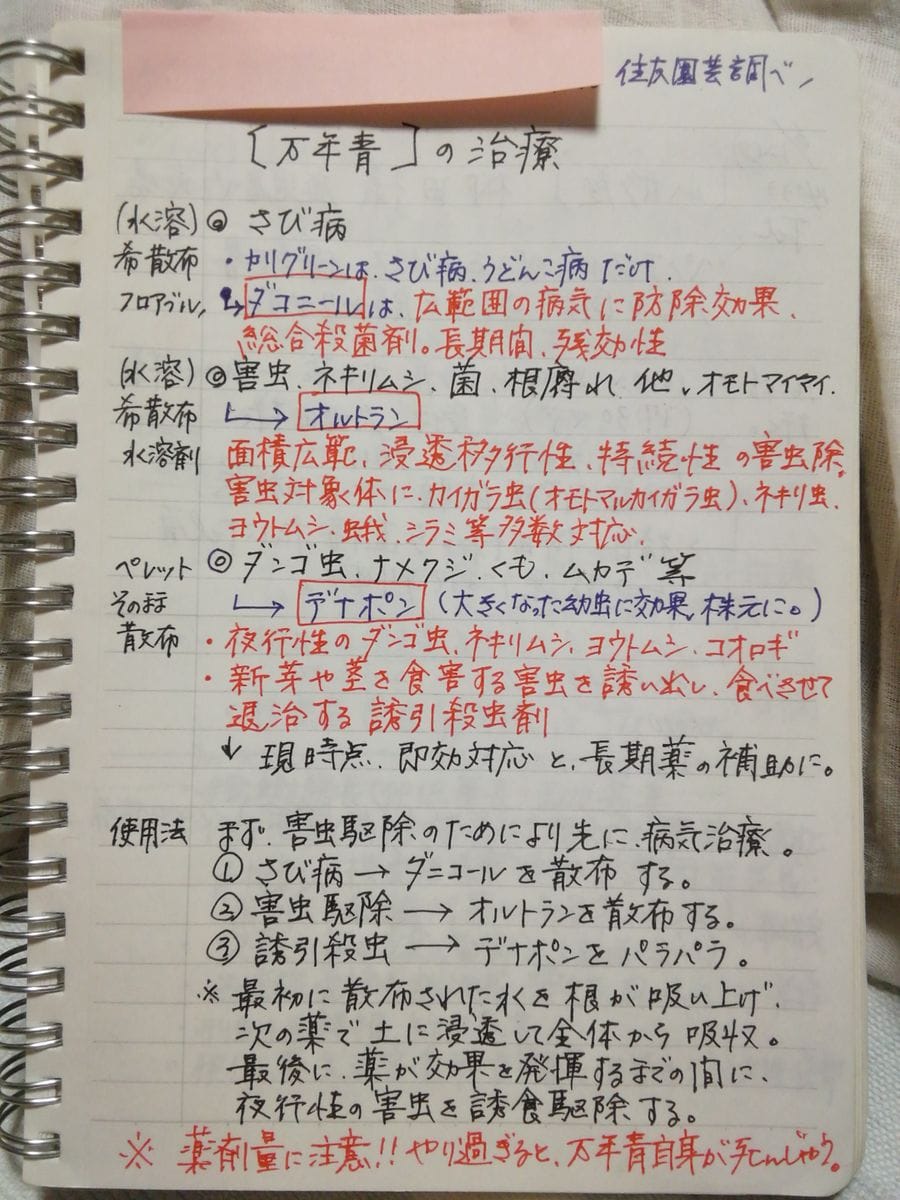 住友園芸調べ
[万年青]の治療
(水溶) ◎ さび病
希散布 ・カリグリーンは、さび病、うどんこ病だけ.
フロアブル、 ↳ ダコニールは、広範囲の病気に防除効果、
総合殺菌剤。長期間、残効性
(水溶) ◎ 害虫、ネキリムシ、菌、根腐れ 他、オモトマイマイ.
希散布 → オルトラン
水溶剤 面積広範、浸透移行性、持続性の害虫除。
害虫対象体に、カイガラ虫(オモトマルカイガラ虫)、ネキリ虫、
ヨウトムシ、蛾、シラミ等多数対応、
ペレット ◎ ダンゴ虫、ナメクジ、くも、ムカデ等
そのまま → デナポン (大きくなった幼虫に効果、株元に。)
散布 ・夜行性のダンゴ虫、ネキリムシ、ヨウトムシ、コオロギ
・新芽や茎を食害する害虫を誘い出し、食べさせて
退治する誘引殺虫剤
↓ 現時点、即効対応と、長期薬の補助に。
使用法 まず、害虫駆除のためにより先に、病気治療。
① さび病 → ダニコールを散布する。
② 害虫駆除 → オルトランを散布する。
③ 誘引殺虫 → デナポンをパラパラ。
※ 最初に散布された水を根が吸い上げ、
次の薬で土に浸透して全体から吸収。
最後に、薬が効果を発揮するまでの間に、
夜行性の害虫を誘食駆除する。
※ 薬剤量に注意!! やり過ぎると、万年青自身が死んじゃう。